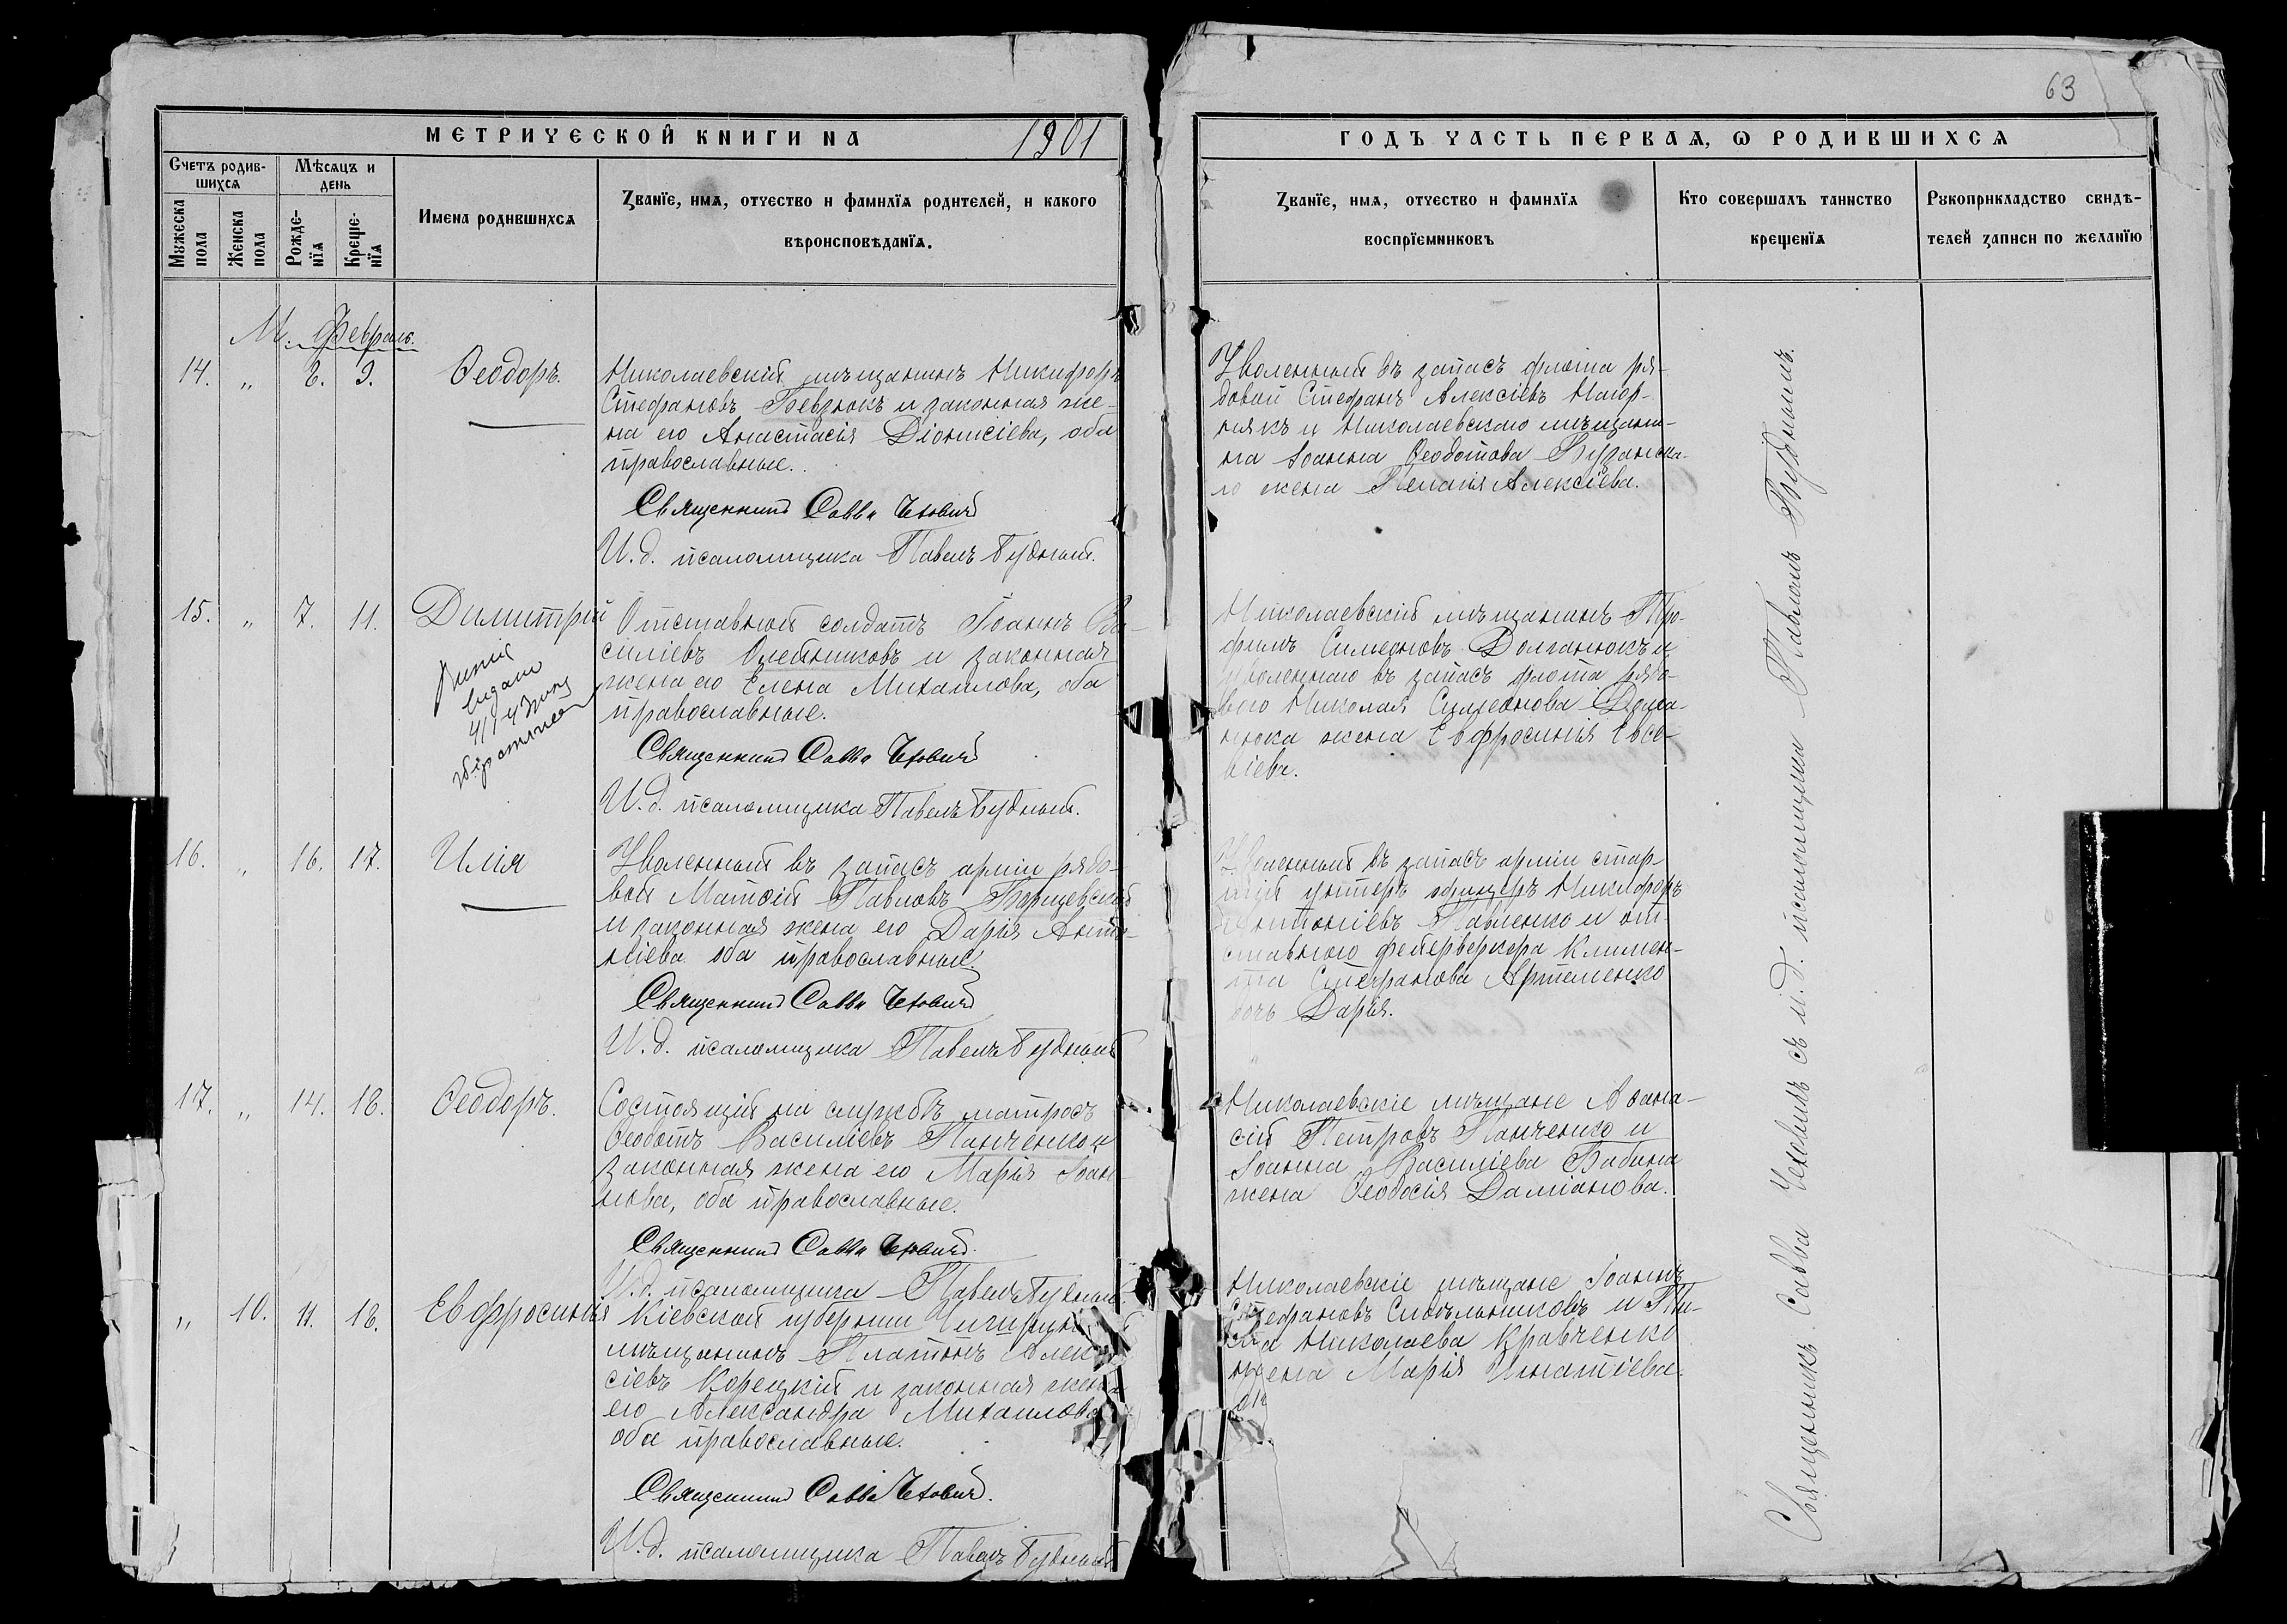 63
МЕТРИЧЕСКОЙ КНИГИ НА 1901
ГОДЪ ЧАСТЬ ПЕРВАѦ, Ѡ РОДИВШИХСѦ
Счетъ родив-
шихсѧ
Мѣсѧцъ и
день
Мꙋжеска
пола
Женска
пола
Рожде-
нїѧ
Креще-
нїѧ
Имена родившихсѧ
Званїе, имѧ, отчество и фамилїѧ родителей, и какого
вѣроисповѣданїѧ.
Званїе, имѧ, отчество и фамилїѧ
воспрїемниковъ
Кто совершалъ таинство
крещенїѧ
Рꙋкоприкладство свидѣ-
телей записи по желанїю
М. Февраль.
14. „ 8. 9. Ѳеодоръ.
Николаевскій мѣщанинъ Никифоръ
Стефановъ Бевзюкъ и законная же-
на его Анастасія Діонисіева, оба
православные.
Священникъ Савва Чехович
И. д. псаломщика Павелъ Будный.
Уволенный въ запасъ флота ря-
довой Стефанъ Алексіевъ
и Николаевского мѣщани-
на Іоанна Ѳеодотова
го жена Пелагія Алексіева.
15. „ 7. 11. Димитрій
видано
Отставной солдатъ Іоаннъ Ва-
силіевъ Олейниковъ и законная
жена его Елена Михаилова, оба
православные.
Священникъ Савва Чехович
И. д. псаломщика Павелъ Будный.
Николаевскій мѣщанинъ Тро-
фимъ Симеоновъ Долганюкъ и
уволеннаго въ запасъ флота рядо-
вого Николая Симеонова Долга-
нюка жена Евфросинія Евсе-
віева.
16. „ 16. 17. Илія
Уволенный въ запасъ арміи рядо-
вой Матѳій Павловъ Борщевскій
и законная жена его Дарія Анто-
ніева оба православные.
Священникъ Савва Чехович
И. д. псаломщика Павелъ Будный
Уволенный въ запасъ арміи стар-
шій унтеръ офицеръ Никифоръ
Антоніевъ Павленко и от-
ставного фейерверкера Климен-
та Стефанова Артеменко
дочь Дарія.
17. „ 14. 18. Ѳеодоръ.
Состоящій на службѣ матросъ
Ѳеодотъ Василіевъ Панченко и
законная жена его Марія Іоан-
нова, оба православные.
Священникъ Савва Чехович.
И. д. псаломщика Павелъ Будный.
Николаевскіе мѣщане Аѳана-
сій Петровъ Панченко и
Іоанна Василіева Бабина
жена Ѳеодосія Даміанова.
„ 10. 11. 18. Евфросинія
Кіевской губерніи Чигиринскій
мѣщанинъ Платонъ Алек-
сіевъ Корецкій и законная жена
его Александра Михаилова
оба православные.
Священникъ Савва Чехович.
И. д. псаломщика Павелъ Будный
Николаевскіе мѣщане Іоаннъ
Стефановъ Сидѣльниковъ и
Николаева Кравченко
жена Марія Игнатіева.
Священникъ Савва Чеховичъ съ и. д. псаломщика Павломъ Буднымъ.